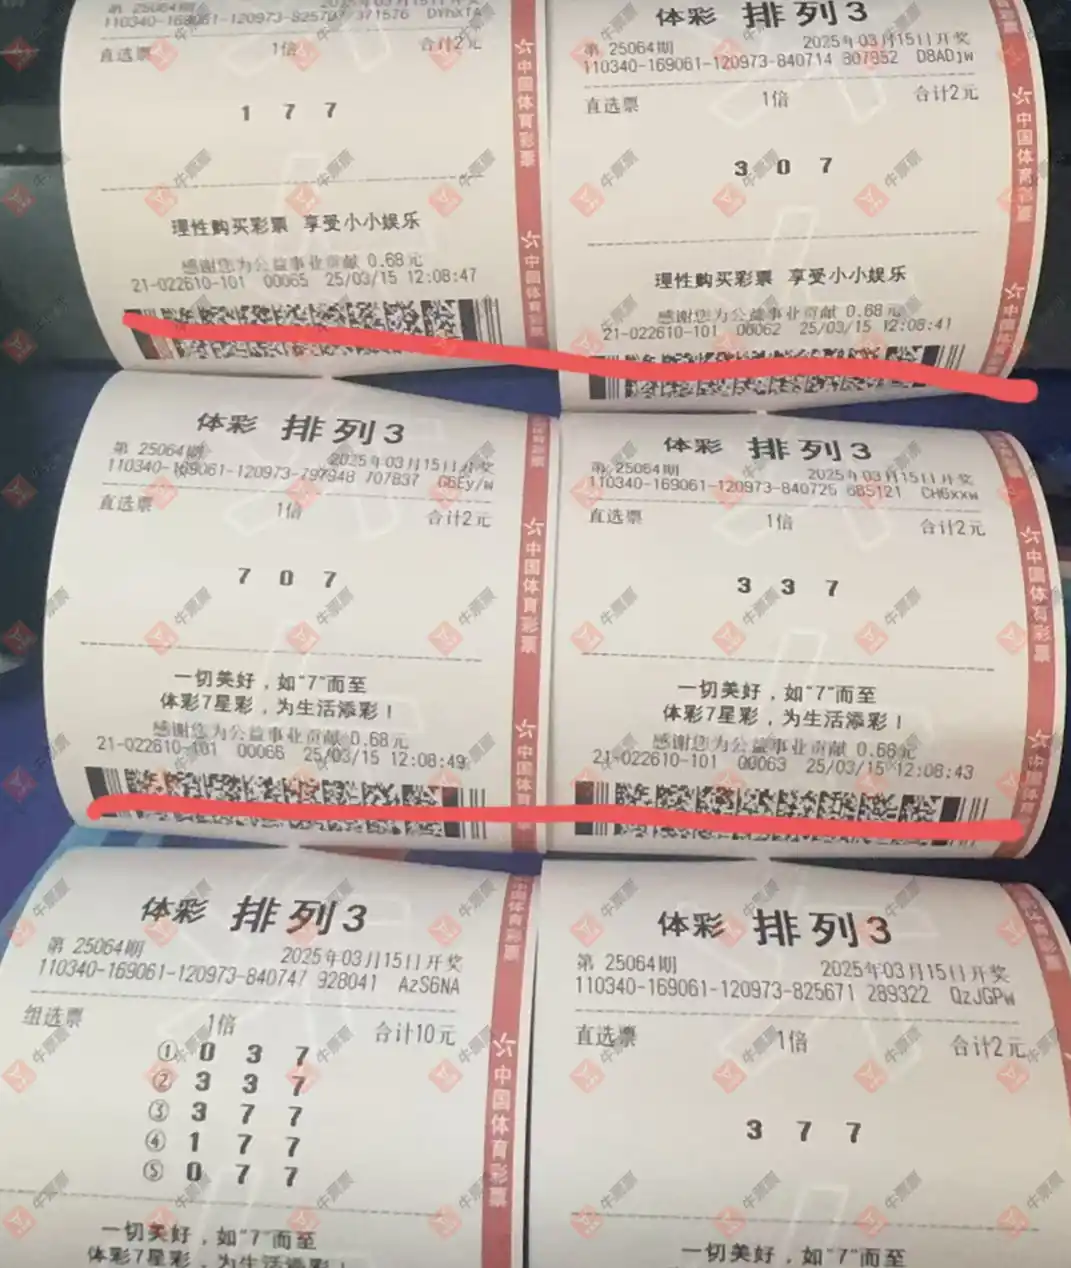 第 25064期
2025年03月15日开奖
110340-169061-120973-825707 371576 DYhXTA
直选票 1倍 合计2元
1 7 7
理性购买彩票 享受小小娱乐
感谢您为公益事业贡献 0.68元
21-022610-101 00065 25/03/15 12:08:47
中国体育彩票
体彩 排列3
第 25064期 2025年03月15日开奖
110340-169061-120973-840714 807952 D8ADjw
直选票 1倍 合计2元
3 0 7
理性购买彩票 享受小小娱乐
感谢您为公益事业贡献 0.68元
21-022610-101 00062 25/03/15 12:08:41
中国体育彩票
体彩 排列3
第 25064期 2025年03月15日开奖
110340-169061-120973-797948 707837 GBEy/w
直选票 1倍 合计2元
7 0 7
一切美好，如“7”而至
体彩7星彩，为生活添彩！
感谢您为公益事业贡献 0.68元
21-022610-101 00066 25/03/15 12:08:49
中国体育彩票
体彩 排列3
第 25064期 2025年03月15日开奖
110340-169061-120973-840725 685121 CH6xxw
直选票 1倍 合计2元
3 3 7
一切美好，如“7”而至
体彩7星彩，为生活添彩！
感谢您为公益事业贡献 0.68元
21-022610-101 00063 25/03/15 12:08:43
中国体育彩票
体彩 排列3
第 25064期 2025年03月15日开奖
110340-169061-120973-840747 928041 AzS6NA
组选票 1倍 合计10元
① 0 3 7
② 3 3 7
③ 3 7 7
④ 1 7 7
⑤ 0 7 7
一切美好，如“7”而至
体彩7星彩，为生活添彩！
中国体育彩票
体彩 排列3
第 25064期 2025年03月15日开奖
110340-169061-120973-825671 289322 QzJGPw
直选票 1倍 合计2元
3 7 7
一切美好，如“7”而至
牛票票